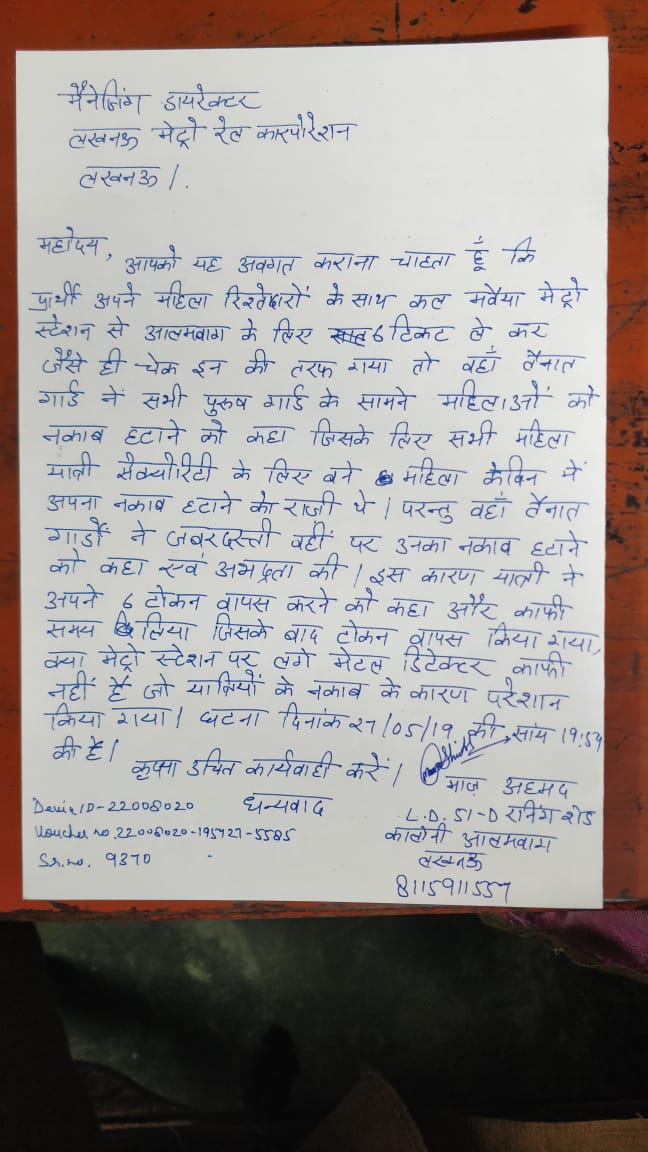 मैनेजिंग डायरेक्टर
लखनऊ मेट्रो रेल कारपोरेशन
लखनऊ।
महोदय,
आपको यह अवगत कराना चाहता हूँ कि
प्रार्थी अपने महिला रिश्तेदारों के साथ कल मवैया मेट्रो
स्टेशन से आलमबाग के लिए 6 टिकट ले कर
जैसे ही चेक इन की तरफ गया तो वहाँ तैनात
गार्ड नें सभी पुरुष गार्ड के सामने महिलाओं को
नकाब हटाने को कहा जिसके लिए सभी महिला
यात्री सैक्योरिटी के लिए बने महिला केबिन में
अपना नकाब हटाने को राजी थे। परन्तु वहाँ तैनात
गार्डों ने जबरदस्ती वहीं पर उनका नकाब हटाने
को कहा एवं अभद्रता की। इस कारण यात्री ने
अपने 6 टोकन वापस करने को कहा और काफी
समय लिया जिसके बाद टोकन वापस किया गया,
क्या मेट्रो स्टेशन पर लगे मेटल डिटेक्टर काफी
नहीं हैं जो यात्रियों के नकाब के कारण परेशान
किया गया। घटना दिनांक 27/05/19 की सांय 19:54
की है।
कृपया उचित कार्यवाही करें।
धन्यवाद
माज़ अहमद
L.D. 51-D रनिंग शेड
कालोनी आलमबाग
लखनऊ
8115911557
Device ID-22008020
Voucher no. 22008020-195727-5585
Sr. no. 9370